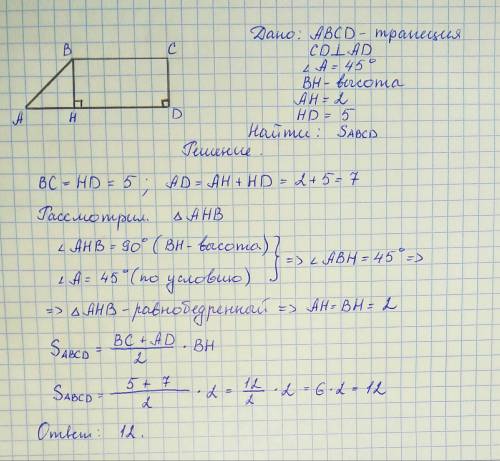 B C
A H D
Дано: ABCD - трапеция
CD⊥AD
∠A = 45°
BH - высота
AH = 2
HD = 5
Найти: SABCD
Решение.
BC = HD = 5 ; AD = AH + HD = 2 + 5 = 7
Рассмотрим. △AHB
∠AHB = 90° (BH - высота)
∠A = 45° (по условию) } => ∠ABH = 45° =>
=> △AHB - равнобедренный => AH = BH = 2
SABCD = (BC + AD)/2 · BH
SABCD = (5 + 7)/2 · 2 = 12/2 · 2 = 6 · 2 = 12
Ответ: 12.